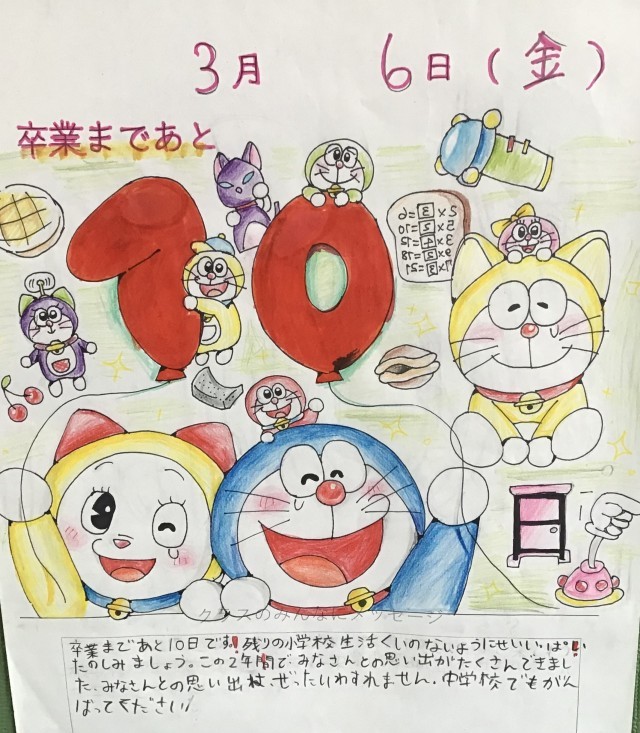 3月 6日(金)
卒業まであと
10
2×3=6
5×2=10
3×4=12
9×2=18
7×3=21
日
クラスのみんなにメッセージ
卒業まであと10日です!!残りの小学校生活くいのないようにせいいっぱい!!
たのしみましょう。この2年間で、みなさんとの思い出がたくさんできまし
た。みなさんとの思い出は、ぜったいわすれません。中学校でもがん
ばってください!